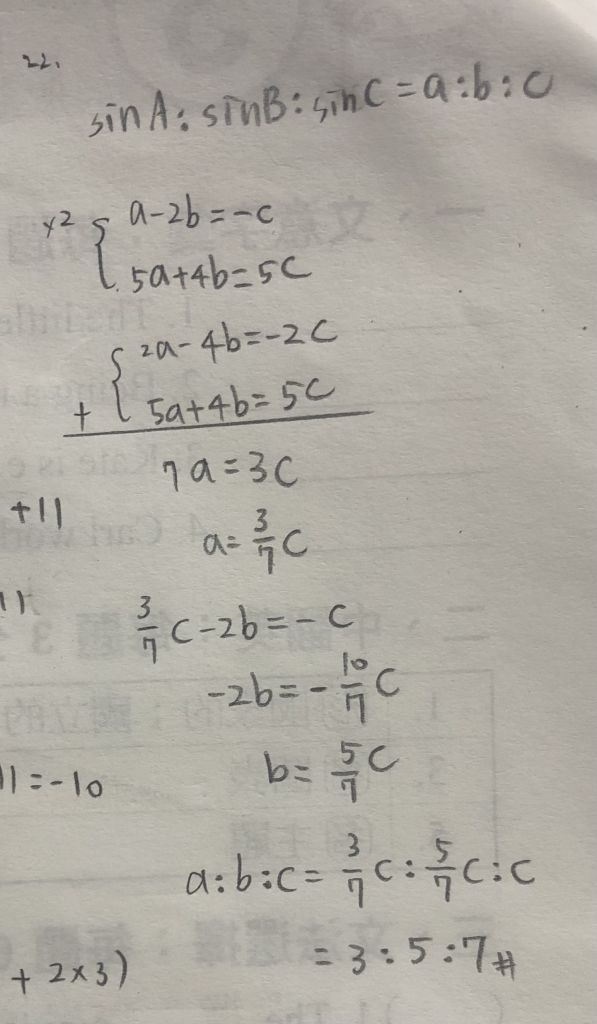 22.
sinA:sinB:sinC=a:b:c
×2 { a-2b=-c
5a+4b=5c
{ 2a-4b=-2c
+ 5a+4b=5c
7a=3c
+11
a=3/7 c
3/7 c-2b=-c
-2b=-10/7 c
b=5/7 c
11=-10
a:b:c=3/7 c:5/7 c:c
=3:5:7#
+2×3)